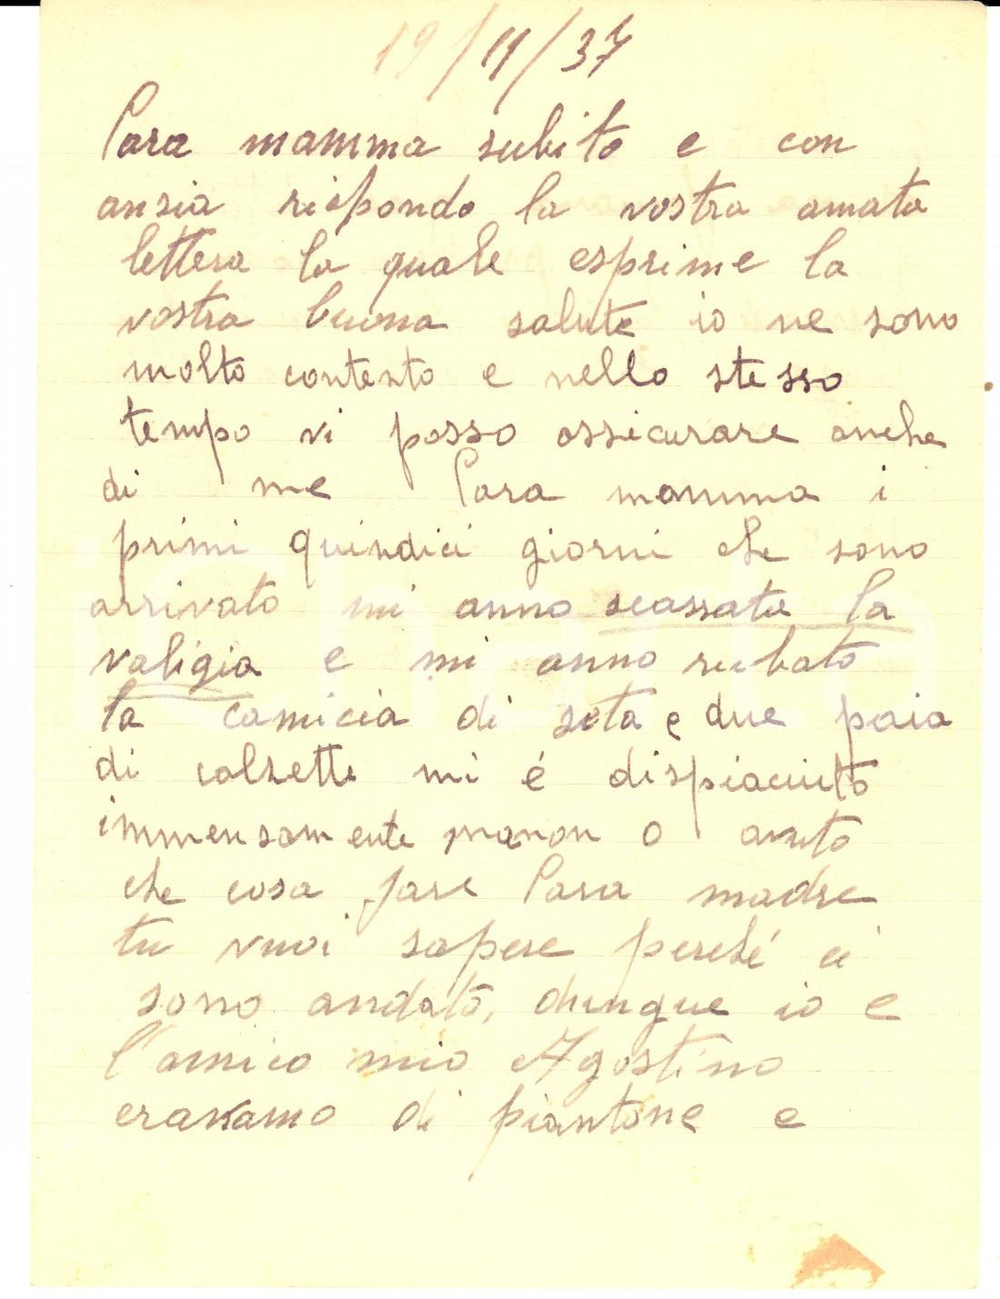 19/11/37
Cara mamma subito e con
ansia rispondo la vostra amata
lettera la quale esprime la
vostra buona salute io ne sono
molto contento e nello stesso
tempo vi posso assicurare anche
di me Cara mamma i
primi quindici giorni che sono
arrivato mi anno scassata la
valigia e mi anno rubato
la camicia di seta e due paia
di calzette mi é dispiaciuto
immensamente manon o avuto
che cosa fare Cara madre
tu vuoi sapere perché ci
sono andato, dunque io e
l'amico mio Agostino
eravamo di piantone e